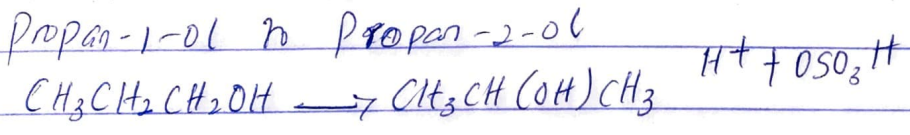 Propan-1-ol to Propan-2-ol
CH3CH2CH2OH ⟶ CH3CH(OH)CH3 H+ + OSO3H